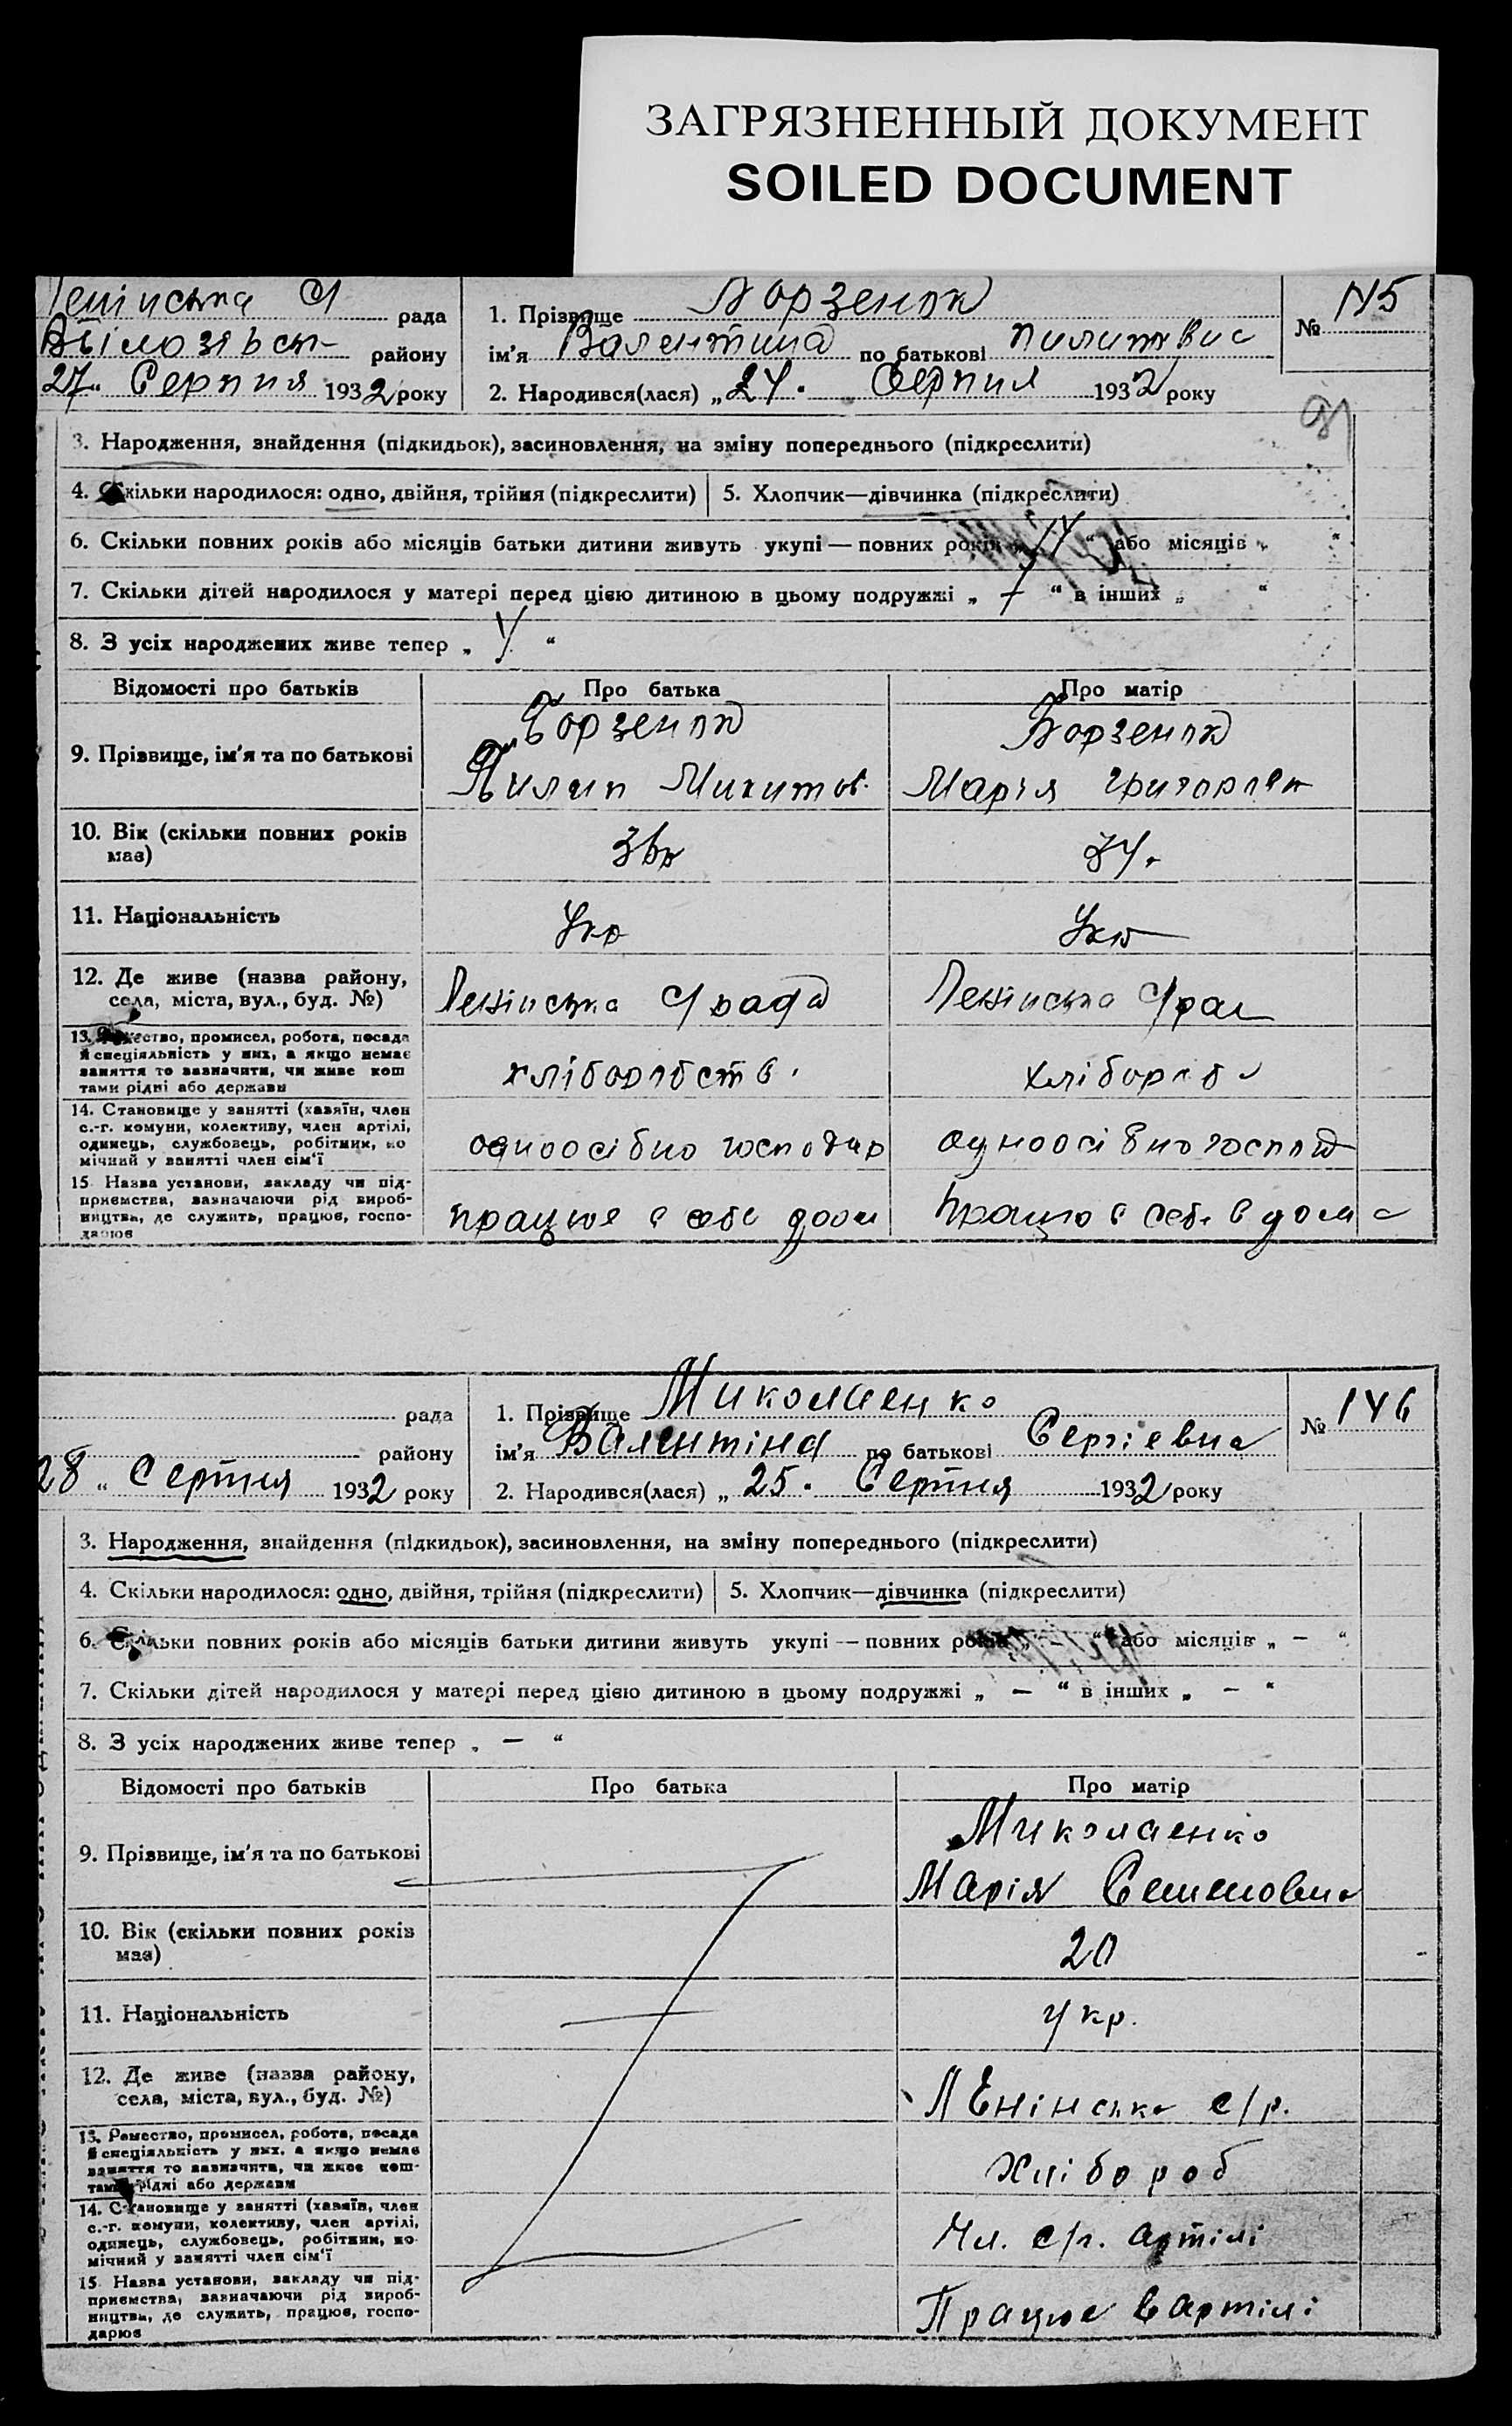 ЗАГРЯЗНЕННЫЙ ДОКУМЕНТ
SOILED DOCUMENT
рада
району
27 Серпня 1932 року
1. Прізвище Борзенко
ім'я Валентина по батькові
2. Народився(лася) „ Серпня 1932 року
№
3. Народження, знайдення (підкидьок), засиновлення, на зміну попереднього (підкреслити)
4. Скільки народилося: одно, двійня, трійня (підкреслити) 5. Хлопчик—дівчинка (підкреслити)
6. Скільки повних років або місяців батьки дитини живуть укупі — повних років „ “ або місяців „ “
7. Скільки дітей народилося у матері перед цією дитиною в цьому подружжі „ “ в інших „ “
8. З усіх народжених живе тепер „ “
Відомості про батьків Про батька Про матір
9. Прізвище, ім'я та по батькові
Борзенко
Пилип Микитов.
Борзенко
Марія
10. Вік (скільки повних років
має)
11. Національність Укр Укр
12. Де живе (назва району,
села, міста, вул., буд. №)
Ленінська с/рада
Ленінська с/рад
13. Ремество, промисел, робота, посада
й спеціяльність у них, а якщо немає
заняття то зазначити, чи живе кош
тами рідні або держави
хліборобств.
14. Становище у занятті (хазяїн, член
с.-г. комуни, колективу, член артілі,
одинець, службовець, робітник, по
мічний у занятті член сім'ї
одноосібно господар
одноосібно господ
15. Назва установи, закладу чи під-
приємства, зазначаючи рід вироб-
ництва, де служить, працює, госпо-
дарює
працює в себе дома
працює в себе в дома
рада
району
28 „ Серпня 1932 року
1. Прізвище Миколаенко
ім'я Валентіна по батькові Сергіевна
2. Народився(лася) „ 25. Серпня 1932 року
№ 146
3. Народження, знайдення (підкидьок), засиновлення, на зміну попереднього (підкреслити)
4. Скільки народилося: одно, двійня, трійня (підкреслити) 5. Хлопчик—дівчинка (підкреслити)
6. Скільки повних років або місяців батьки дитини живуть укупі — повних років „ — “ або місяців „ — “
7. Скільки дітей народилося у матері перед цією дитиною в цьому подружжі „ — “ в інших „ — “
8. З усіх народжених живе тепер „ — “
Відомості про батьків Про батька Про матір
9. Прізвище, ім'я та по батькові
Миколаенко
Марія Семеновна
10. Вік (скільки повних років
має)
20
11. Національність укр.
12. Де живе (назва району,
села, міста, вул., буд. №)
Ленінська с/р.
13. Ремество, промисел, робота, посада
й спеціяльність у них, а якщо немає
заняття то зазначити, чи живе кош-
тами рідні або держави
Хлібороб
14. Становище у занятті (хазяїн, член
с.-г. комуни, колективу, член артілі,
одинець, службовець, робітник, по-
мічний у занятті член сім'ї
Чл. с/г. артілі
15. Назва установи, закладу чи під-
приємства, зазначаючи рід вироб-
ництва, де служить, працює, госпо-
дарює
Працює в артілі